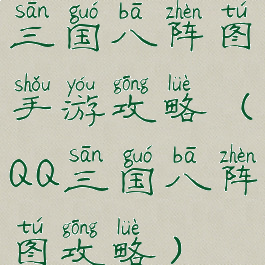 sān guó bā zhèn tú
三国八阵图
shǒu yóu gōng lüè
手游攻略（
sān guó bā zhèn
QQ三国八阵
tú gōng lüè
图攻略）